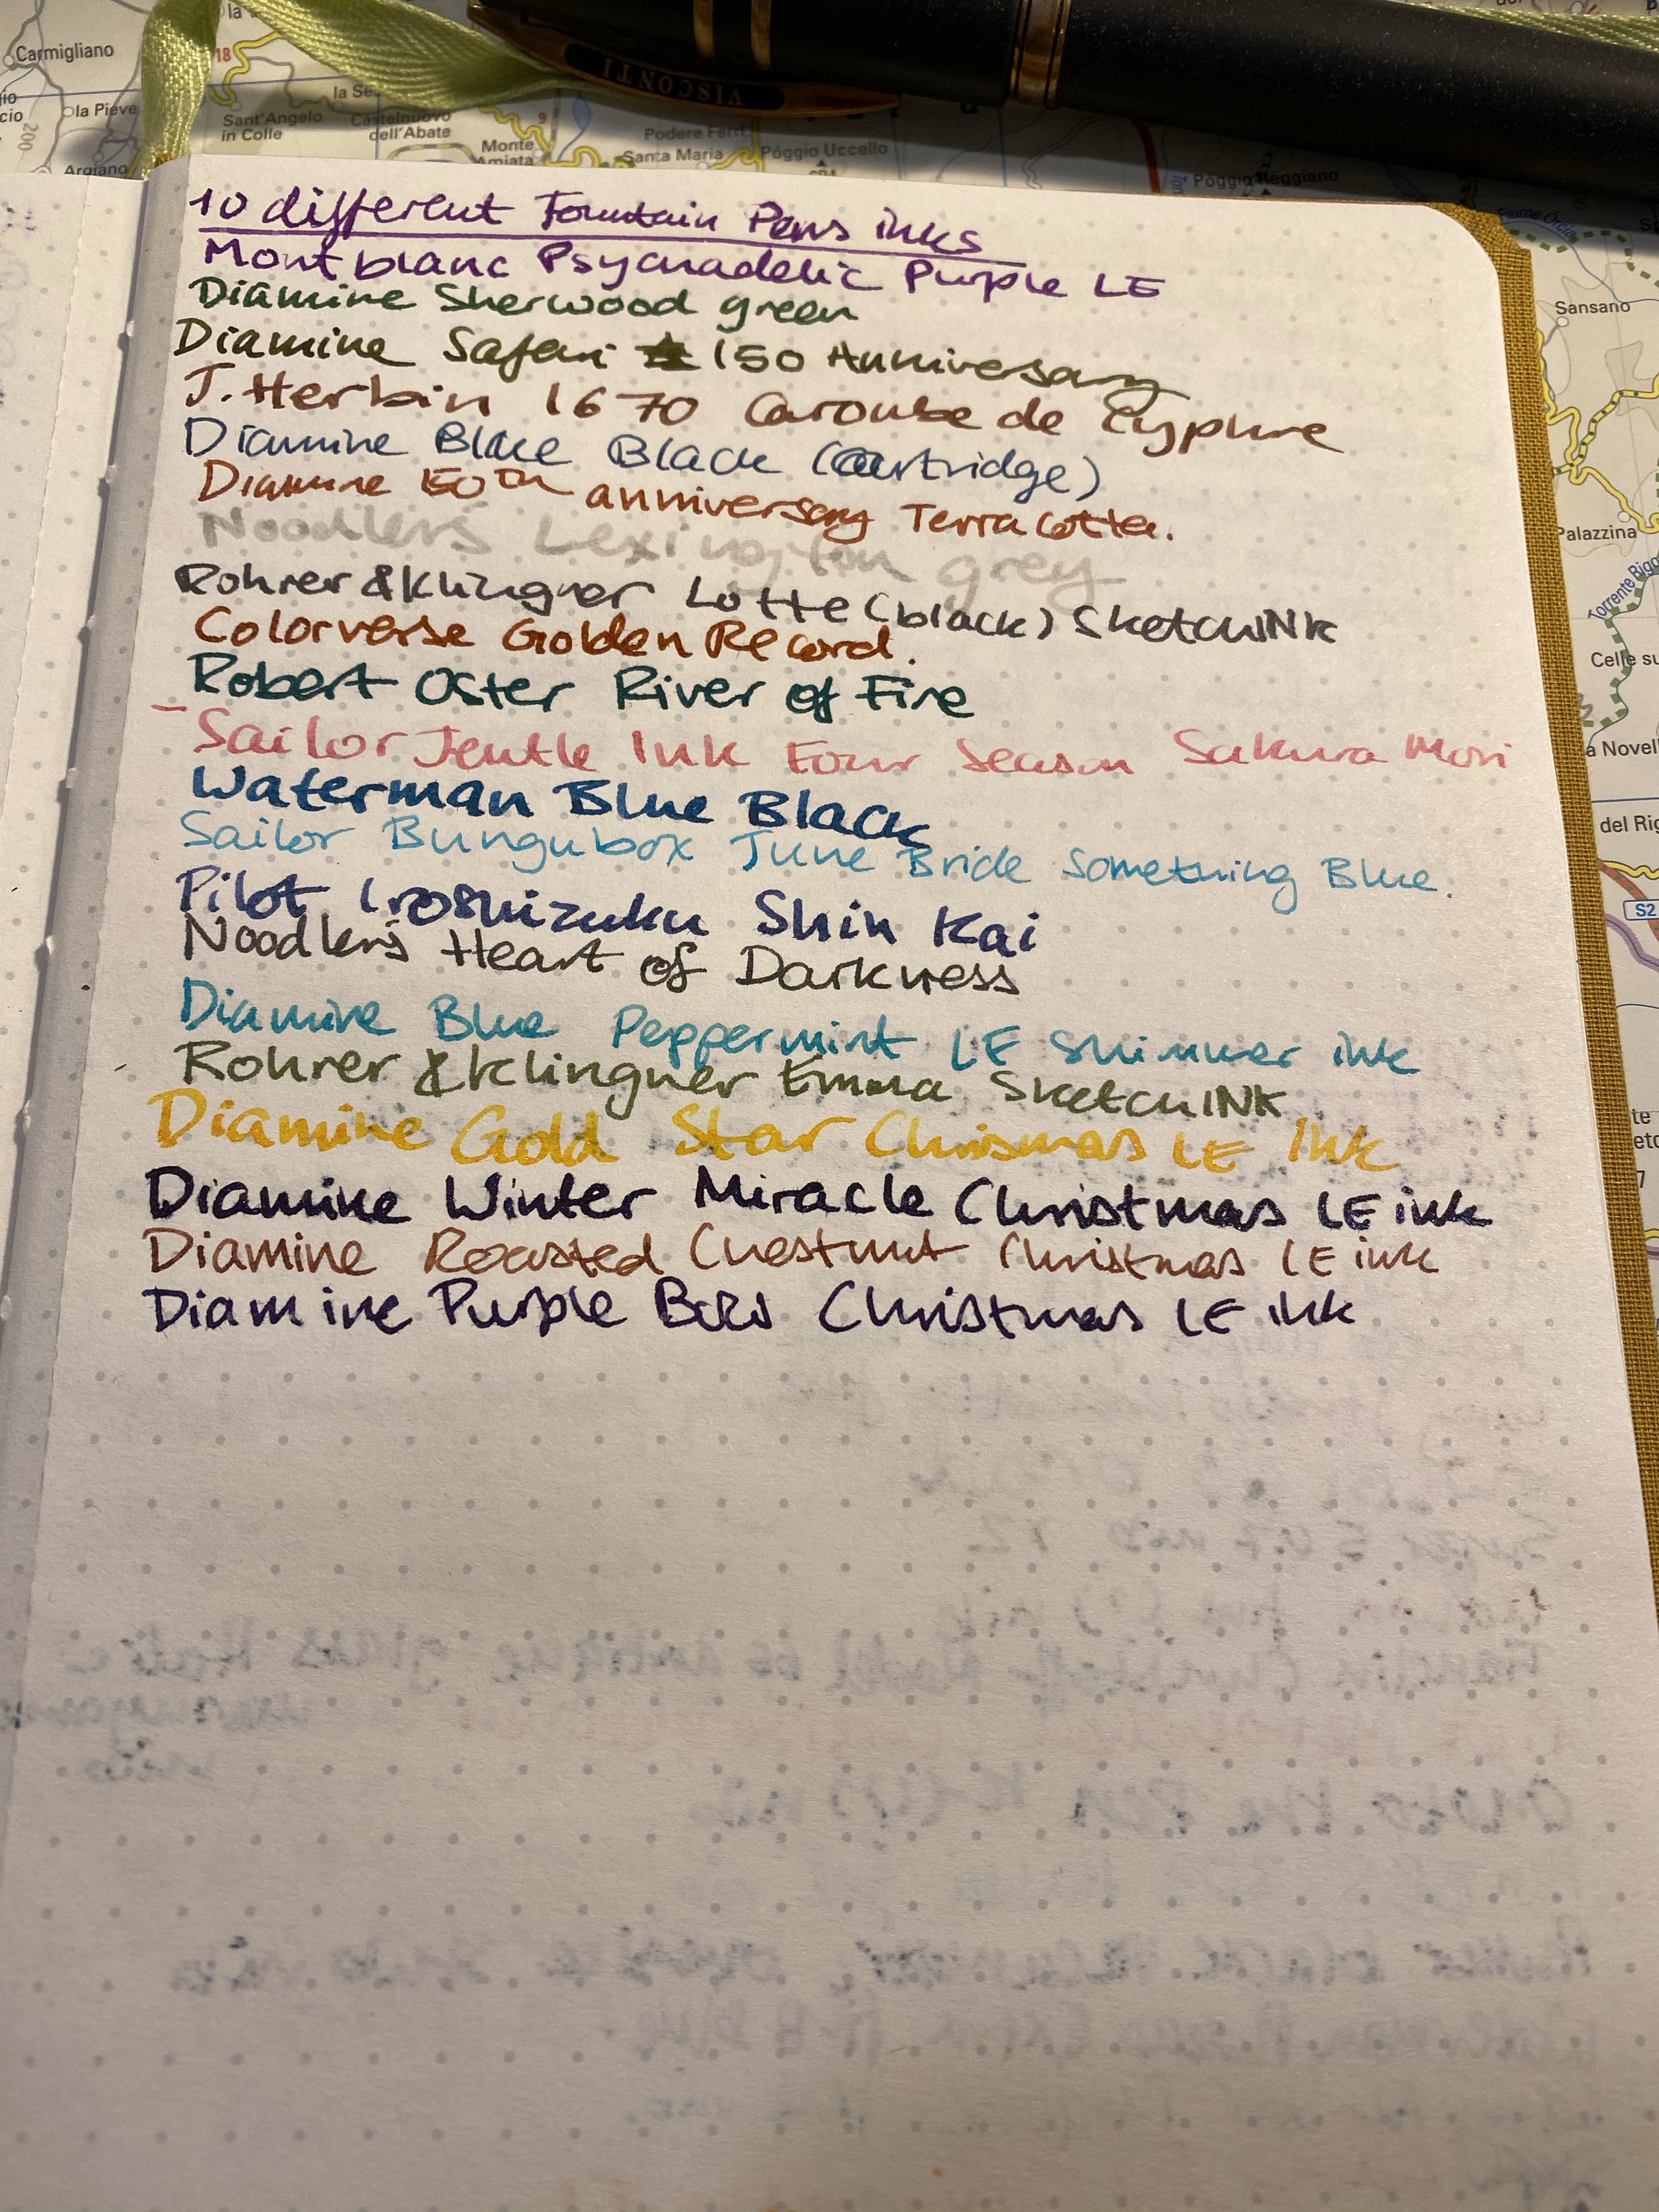 Carmigliano
la
18
la Pieve
200
Argiano
Sant'Angelo
in Colle
la Se
Castelnuovo
dell'Abate
9
Monte
Amiata
VISCONTI
Podere Ferr
Santa Maria
Póggio Uccello
Póggio Reggiano
Fiume Orcia
10 different Fountain Pens inks
Montblanc Psychadelic Purple LE
Diamine Sherwood green
Diamine Safari 150 Anniversary
J. Herbin 1670 Caroube de Cyphre
Diamine Blue Black (Cartridge)
Diamine 150th anniversary Terracotta.
Noodlers Lexington grey
Rohrer & Klingner Lotte (black) SketchINK
Colorverse Golden Record.
Robert Oster River of Fire
- Sailor Jentle Ink Four Season Sakura Mori
Waterman Blue Black
Sailor Bungubox June Bride Something Blue.
Pilot Iroshizuku Shin Kai
Noodler's Heart of Darkness
Diamine Blue Peppermint LE Shimmer ink
Rohrer & Klingner Emma SketchINK
Diamine Gold Star Chrismas LE Ink
Diamine Winter Miracle Christmas LE ink
Diamine Roasted Chestnut Christmas LE ink
Diamine Purple Bow Christmas LE ink
Sansano
Palazzina
Torrente Rigo
Celle su
a Novell
del Rig
S2